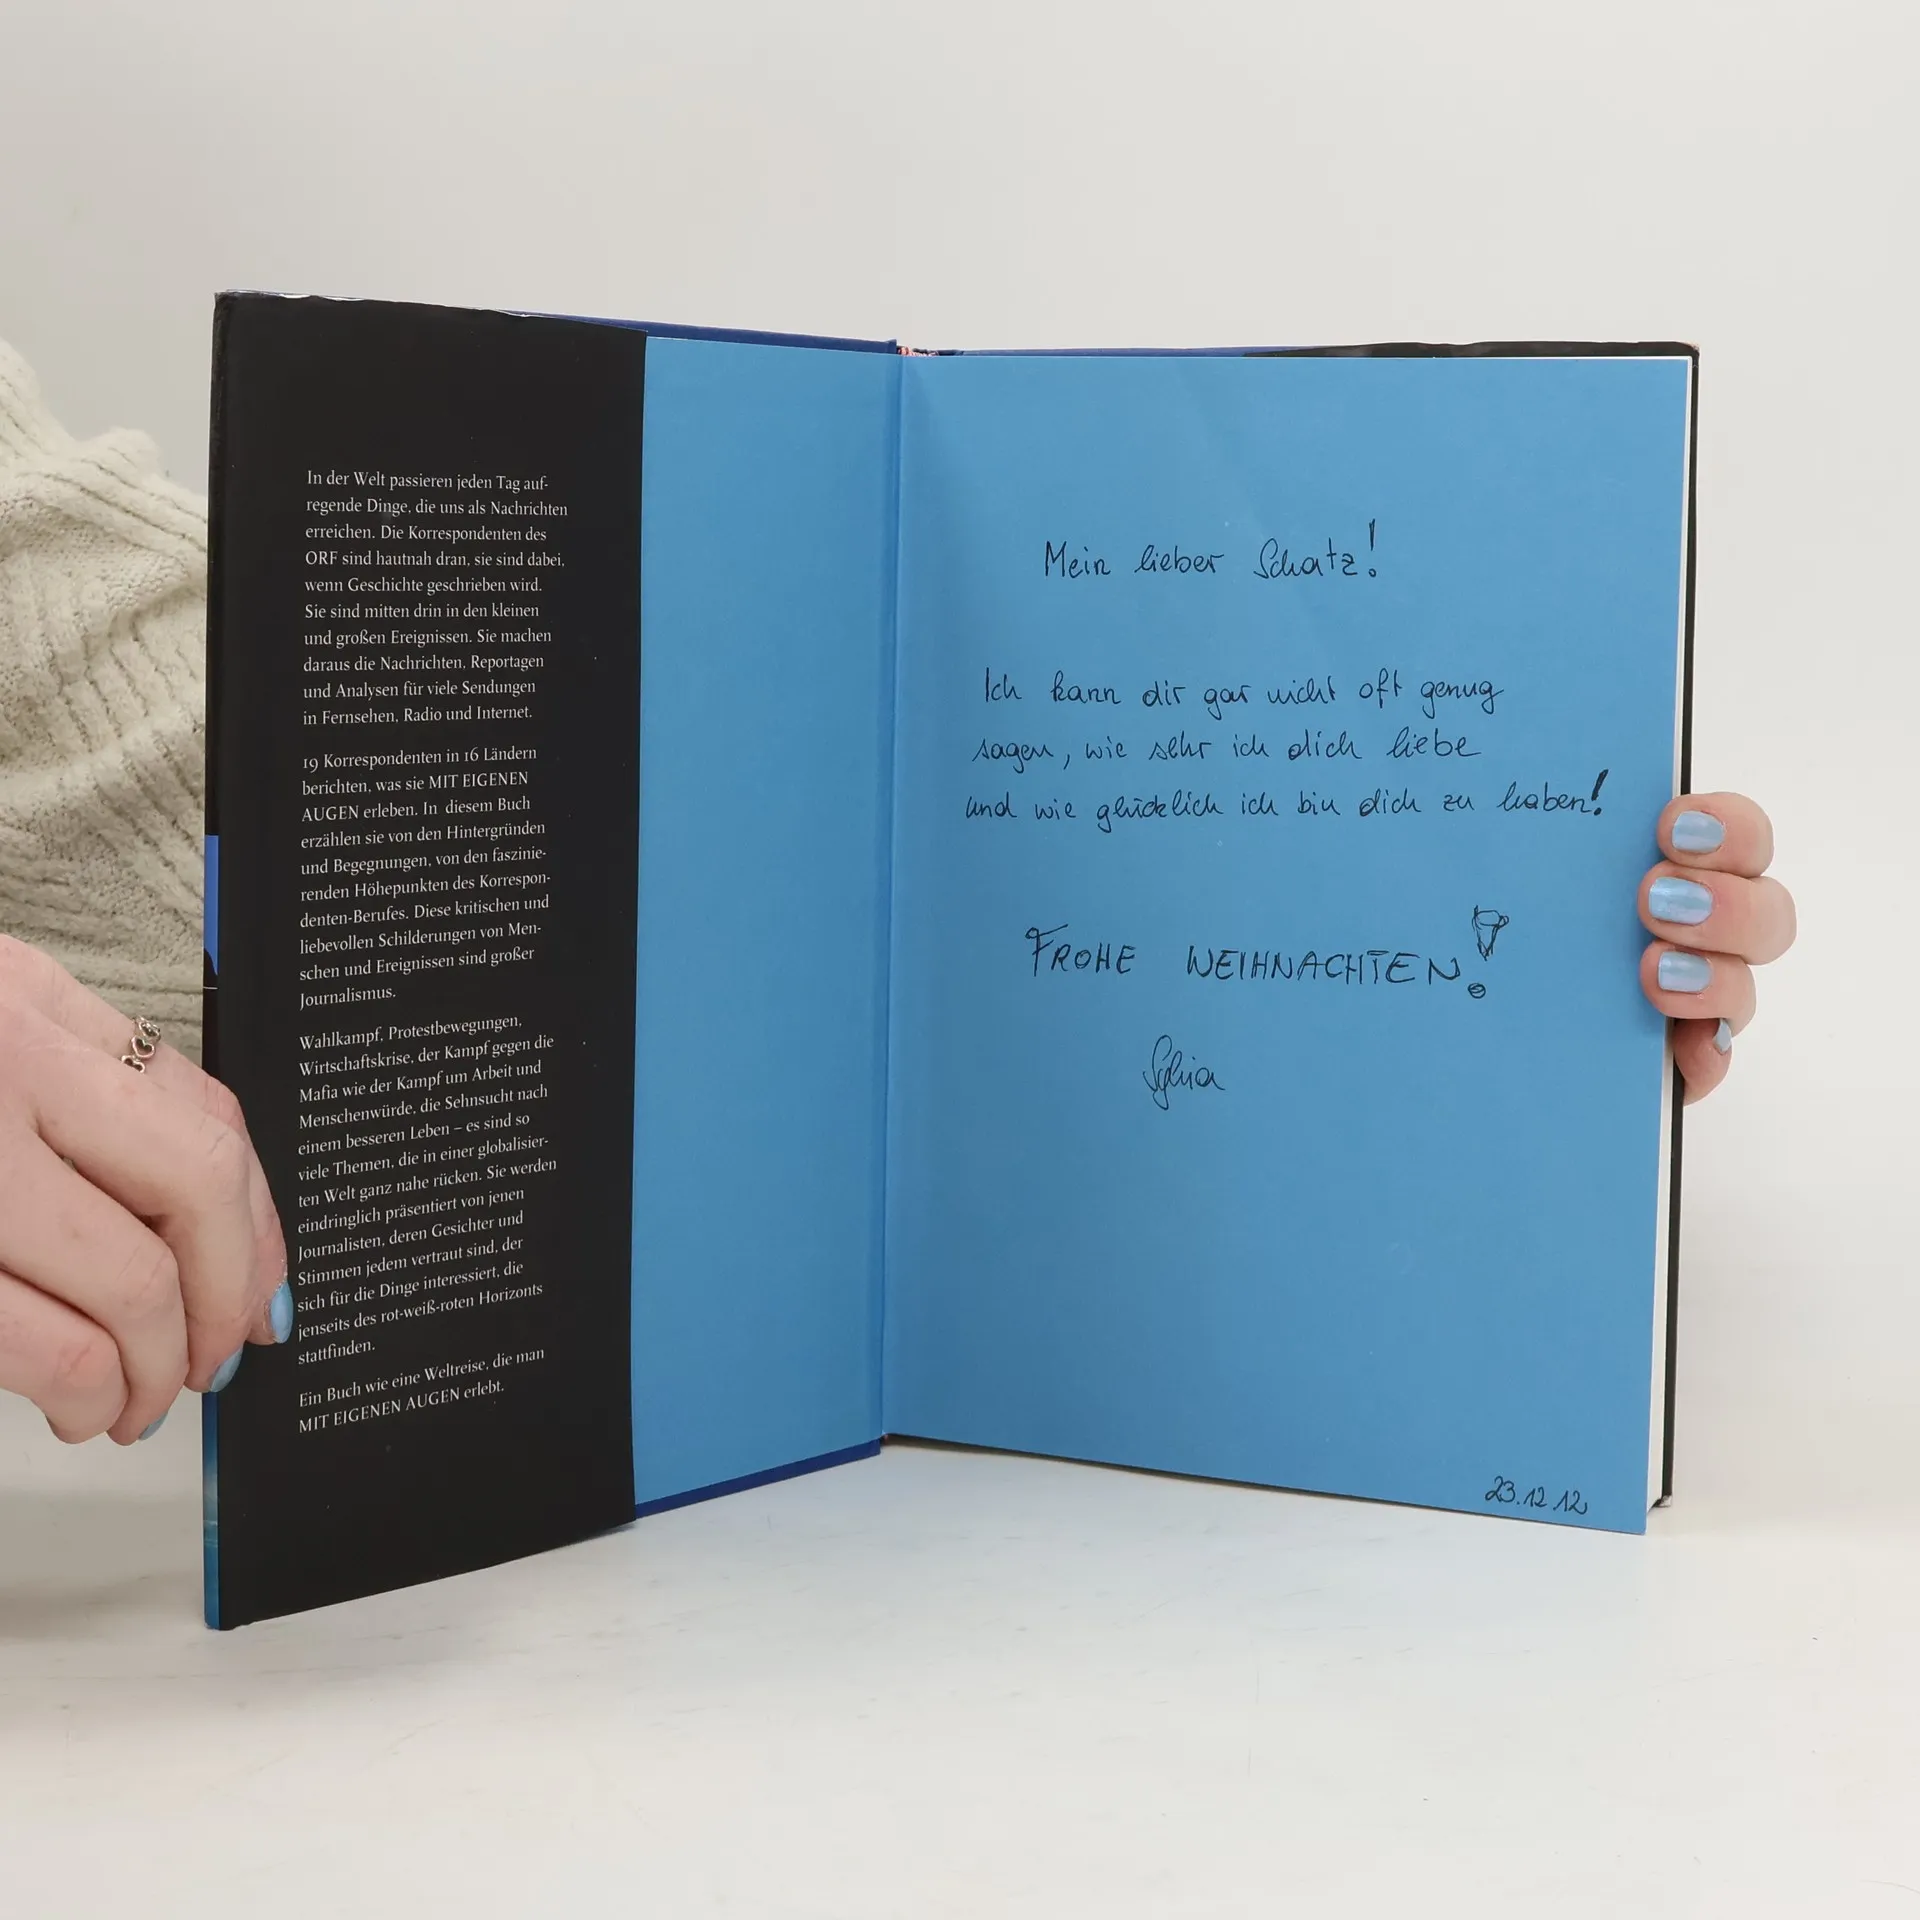 In der Welt passieren jeden Tag auf-
regende Dinge, die uns als Nachrichten
erreichen. Die Korrespondenten des
ORF sind hautnah dran, sie sind dabei,
wenn Geschichte geschrieben wird.
Sie sind mitten drin in den kleinen
und großen Ereignissen. Sie machen
daraus die Nachrichten, Reportagen
und Analysen für viele Sendungen
in Fernsehen, Radio und Internet.
19 Korrespondenten in 16 Ländern
berichten, was sie MIT EIGENEN
AUGEN erleben. In diesem Buch
erzählen sie von den Hintergründen
und Begegnungen, von den faszinie-
renden Höhepunkten des Korrespon-
denten-Berufes. Diese kritischen und
liebevollen Schilderungen von Men-
schen und Ereignissen sind großer
Journalismus.
Wahlkampf, Protestbewegungen,
Wirtschaftskrise, der Kampf gegen die
Mafia wie der Kampf um Arbeit und
Menschenwürde, die Sehnsucht nach
einem besseren Leben – es sind so
viele Themen, die in einer globalisier-
ten Welt ganz nahe rücken. Sie werden
eindringlich präsentiert von jenen
Journalisten, deren Gesichter und
Stimmen jedem vertraut sind, der
sich für die Dinge interessiert, die
jenseits des rot-weiß-roten Horizonts
stattfinden.
Ein Buch wie eine Weltreise, die man
MIT EIGENEN AUGEN erlebt.
Mein lieber Schatz!
Ich kann dir gar nicht oft genug
sagen, wie sehr ich dich liebe
und wie glücklich ich bin dich zu haben!
FROHE WEIHNACHTEN!
Sylvia
23.12.12